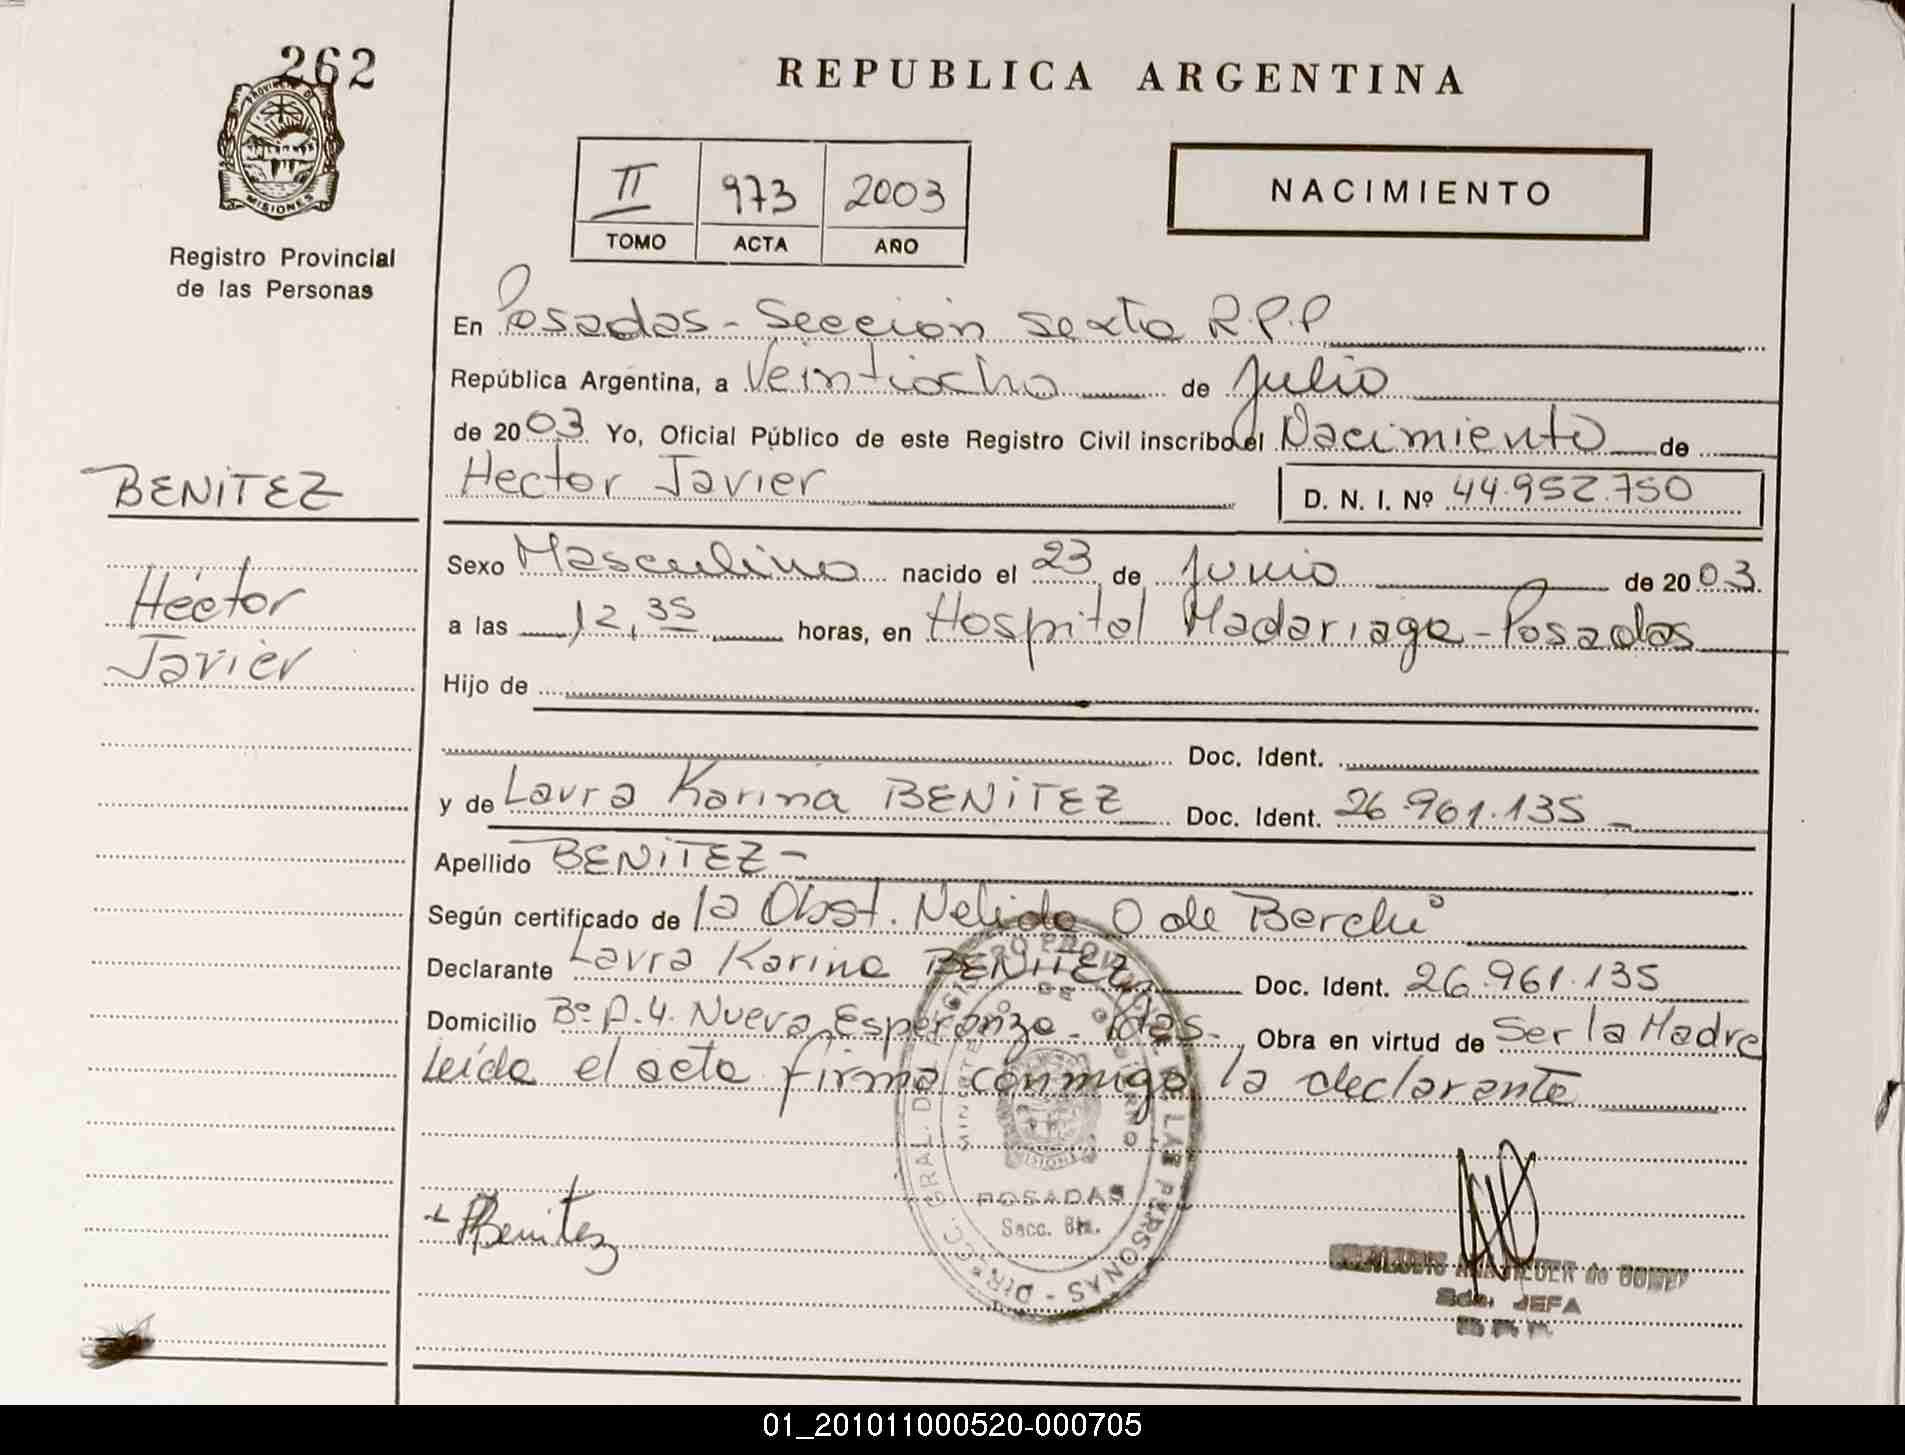 262
PROVINCIA DE
MISIONES
Registro Provincial
de las Personas
REPUBLICA ARGENTINA
II 973 2003
TOMO ACTA AÑO
NACIMIENTO
En Posadas - Sección sexta R.P.P
República Argentina, a Veintiocho de Julio
de 2003 Yo, Oficial Público de este Registro Civil inscribo el Nacimiento de
Hector Javier D. N. I. Nº 44.952.750
BENITEZ
Héctor
Javier
Sexo Masculino nacido el 23 de Junio de 2003
a las 12,35 horas, en Hospital Madariaga - Posadas
Hijo de
Doc. Ident.
y de Laura Karina BENITEZ Doc. Ident. 26.961.135
Apellido BENITEZ -
Según certificado de la Obst. Nelida O de Berchi
Declarante Laura Karina BENITEZ Doc. Ident. 26.961.135
Domicilio Bº A.4. Nueva Esperanza - Pdas - Obra en virtud de Ser la Madre
Leída el acta firma conmigo la declarante
DIRECC. GRAL. DEL REGISTRO PROVINCIAL DE LAS PERSONAS
MINISTERIO DE GOBIERNO
MISIONES
POSADAS
Secc. 6ta.
Benitez
Sda. JEFA
01_201011000520-000705